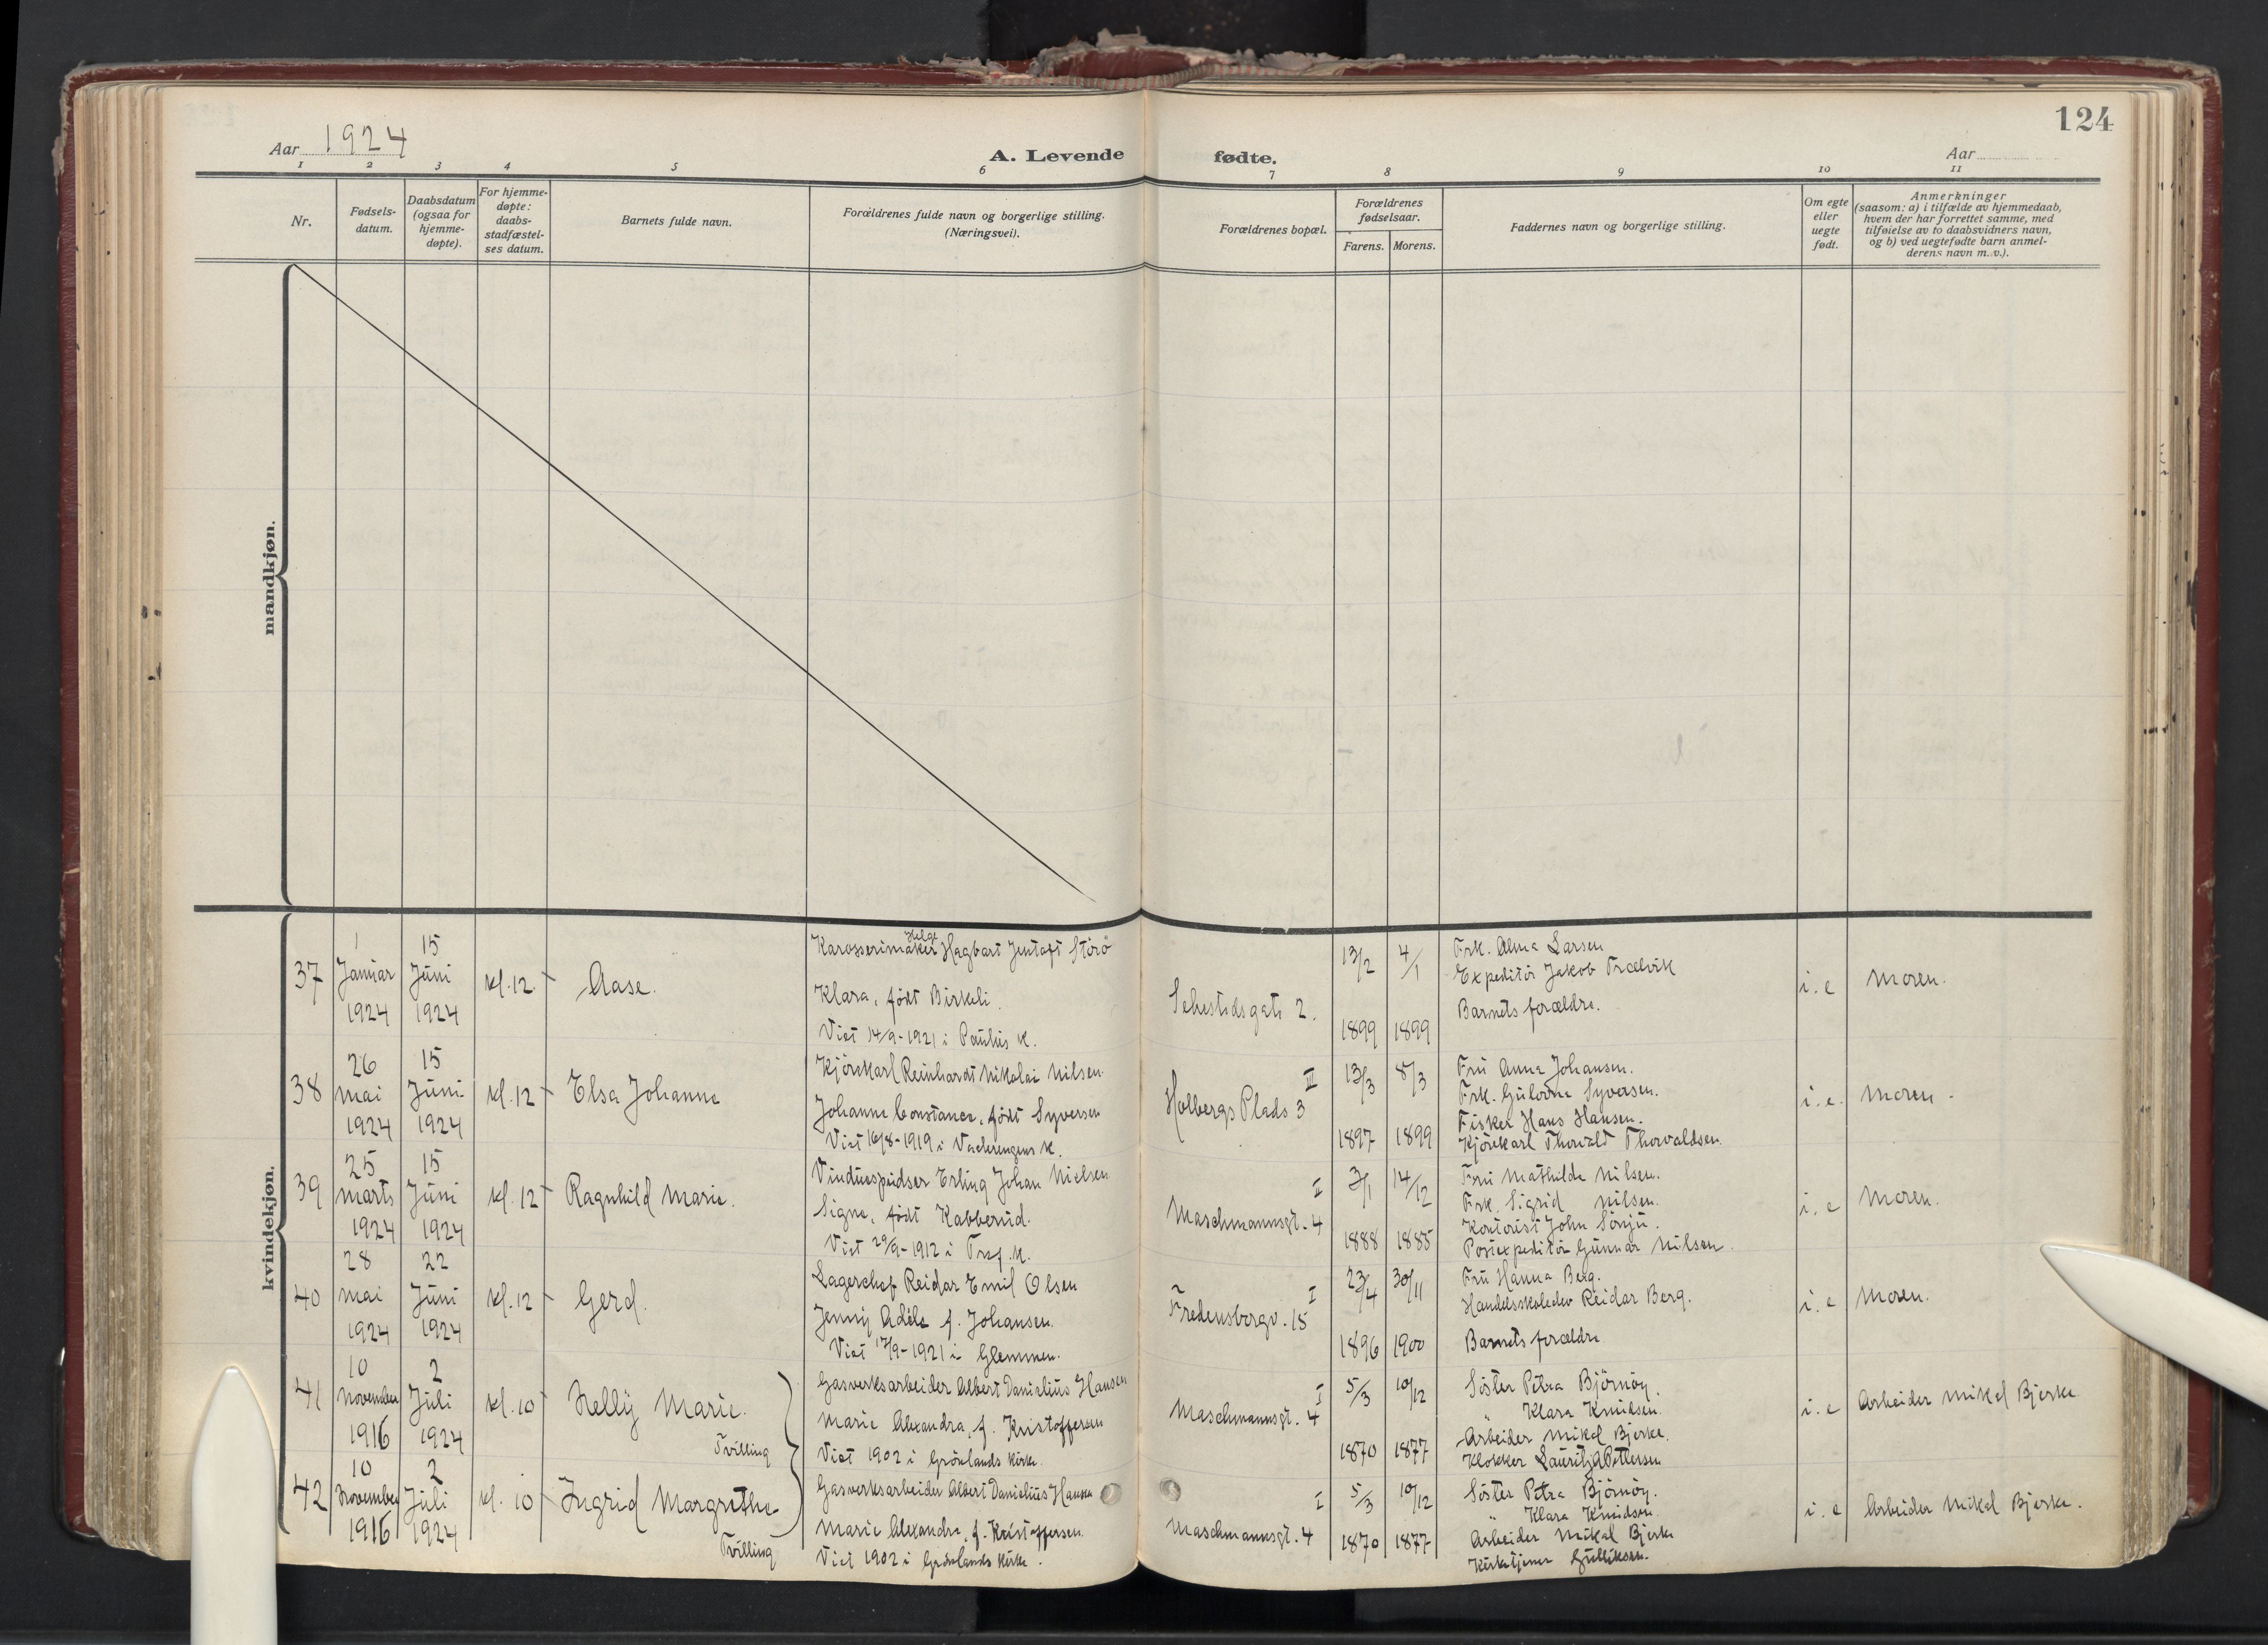 124
Aar 1924
A. Levende fødte.
Aar
1 2 3 4 5 6 7 8 9 10 11
Nr.
Fødsels-
datum.
Daabsdatum
(ogsaa for
hjemme-
døpte).
For hjemme-
døpte:
daabs-
stadfæstel-
ses datum.
Barnets fulde navn.
Forældrenes fulde navn og borgerlige stilling.
(Næringsvei).
Forældrenes bopæl.
Forældrenes
fødselsaar.
Farens. Morens.
Faddernes navn og borgerlige stilling.
Om egte
eller
uegte
født.
Anmerkninger
(saasom: a) i tilfælde av hjemmedaab,
hvem der har forrettet samme, med
tilføielse av to daabsvidners navn,
og b) ved uegtefødte barn anmel-
derens navn m. v.).
mandkjøn.
kvindekjøn.
37
1
Januar
1924
15
Juni
1924
kl. 12
Aase.
Karosserimaker Helge Hagbart Jentoft Störö
Klara, født Birkeli.
Viet 14/9-1921 i Paulus k.
Sehestedsgate 2.
13/2 4/1
1899 1899
Frk. Alma Larsen
Expeditör Jakob Trælvik
Barnets forældre.
i. e
Moren.
38
26
Mai
1924
15
Juni
1924
kl. 12
Elsa Johanne
Kjörekarl Reinhardt Nikolai Nilsen.
Johanne Constance, født Syversen
Viet 16/8-1919 i Vaalerengens k.
III
Holbergs Plads 3
13/3 8/3
1897 1899
Fru Anna Johansen.
Frk. Gulovne Syversen.
Fisker Hans Hansen.
Kjörekarl Thorvald Thorvaldsen.
i. e.
Moren.
39
25
Marts
1924
15
Juni
1924
kl. 12
Ragnhild Marie.
Vinduespudser Erling Johan Nielsen
Signe, født Kabberud.
Viet 29/9-1912 i Tref. k.
II
Maschmannsgt. 4
3/1 14/12
1888 1885
Fru Mathilde Nilsen.
Frk. Sigrid Nilsen.
Kontorist John Sönju.
Postexpeditör Gunnar Nilsen.
i. e
Moren.
40
28
Mai
1924
22
Juni
1924
kl. 12
Gerd.
Lagerchef Reidar Emil Olsen
Jenny Adéle f. Johansen.
Viet 17/9-1921 i Glemmen.
I
Fredensborgv. 15
23/4 30/11
1896 1900
Fru Hanna Berg.
Handelsskoleelev Reidar Berg.
Barnets forældre
i. e
Moren.
41
10
November
1916
2
Juli
1924
kl. 10
Nelly Marie.
Tvilling
Gasverksarbeider Albert Danielius Hansen
Marie Alexandra, f. Kristoffersen
Viet 1902 i Grönlands kirke.
I
Maschmannsgt. 4
5/3 10/12
1870 1877
Söster Petra Björnöy.
" Klara Knudsen.
Arbeider Mikal Bjerke.
Klokker Lauritz A Pettersen
i. e
Arbeider Mikal Bjerke.
42
10
November
1916
2
Juli
1924
kl. 10
Ingrid Margrethe
Tvilling
Gasverksarbeider Albert Danielius Hansen
Marie Alexandra, f. Kristoffersen.
Viet 1902 i Grönlands kirke.
I
Maschmannsgt. 4
5/3 10/12
1870 1877
Söster Petra Björnöy.
" Klara Knudsen.
Arbeider Mikal Bjerke
Kirketjener Gulliksen.
i. e
Arbeider Mikal Bjerke.